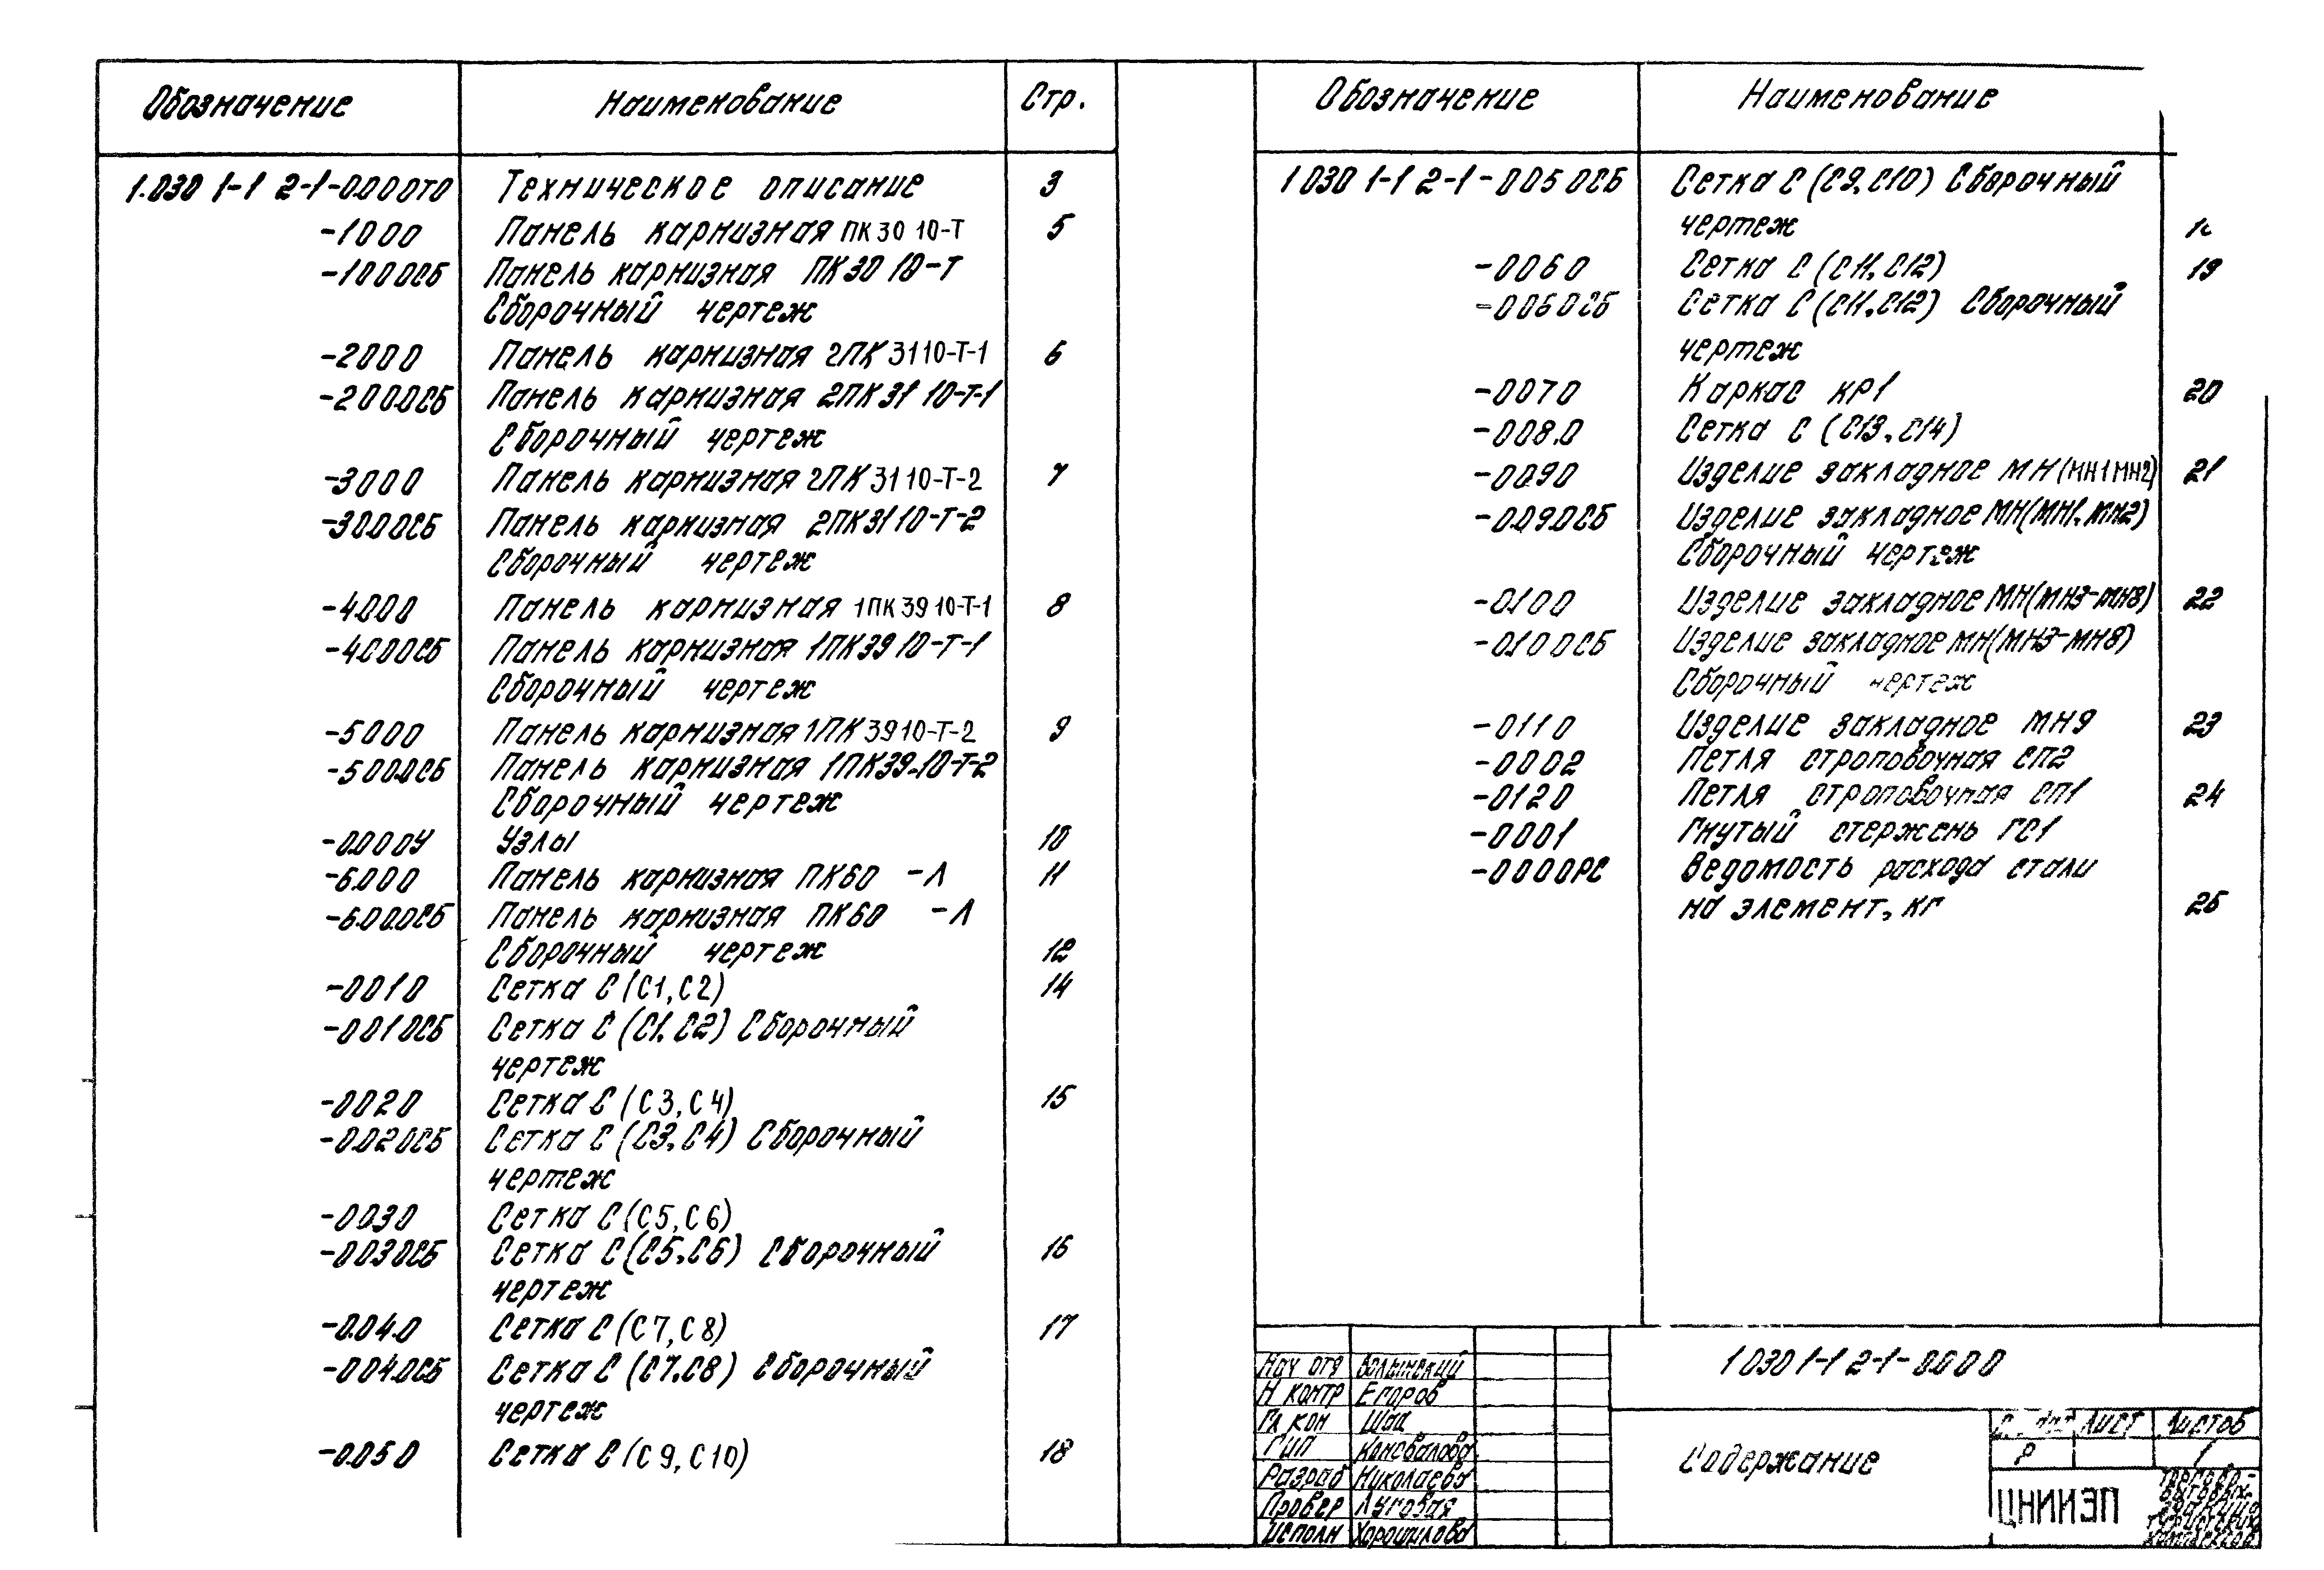 Обозначение Наименование Стр.
1.030 1-1 2-1-0.0.00ТО Техническое описание 3
-1000 Панель карнизная ПК30 10-Т 5
-1000СБ Панель карнизная ПК30 10-Т
Сборочный чертеж
-2000 Панель карнизная 2ПК3110-Т-1 6
-200.0СБ Панель карнизная 2ПК31 10-Т-1
Сборочный чертеж
-3000 Панель карнизная 2ПК3110-Т-2 7
-30.0.0СБ Панель карнизная 2ПК3110-Т-2
Сборочный чертеж
-4.0.00 Панель карнизная 1ПК3910-Т-1 8
-4.0.00СБ Панель карнизная 1ПК39 10-Т-1
Сборочный чертеж
-5000 Панель карнизная 1ПК3910-Т-2 9
-500.0СБ Панель карнизная 1ПК39.10-Т-2
Сборочный чертеж
-0.000У Узлы 10
-6.0.00 Панель карнизная ПК60 -Л 11
-6.0.0.0СБ Панель карнизная ПК60 -Л
Сборочный чертеж 12
-0010 Сетка С (С1, С2) 14
-0010СБ Сетка С (С1, С2) Сборочный
чертеж
-0020 Сетка С (С3, С4) 15
-0.020СБ Сетка С (С3, С4) Сборочный
чертеж
-00.30 Сетка С (С5, С6)
-00.30СБ Сетка С (С5, С6) Сборочный 16
чертеж
-0.04.0 Сетка С (С7, С8) 17
-004.0СБ Сетка С (С7, С8) Сборочный
чертеж
-0.050 Сетка С (С9, С10) 18
Обозначение Наименование
1 030 1-1 2-1-0050СБ Сетка С (С9, С10) Сборочный
чертеж
-0060 Сетка С (С11, С12) 19
-0060СБ Сетка С (С11, С12) Сборочный
чертеж
-0070 Каркас КР1 20
-008.0 Сетка С (С13, С14)
-0090 Изделие закладное МН (МН1 МН2) 21
-0.09.0СБ Изделие закладное МН(МН1, МН2)
Сборочный чертеж
-0.100 Изделие закладное МН(МН3-МН8) 22
-0.100СБ Изделие закладное МН(МН3-МН8)
Сборочный чертеж
-0110 Изделие закладное МН9 23
-0002 Петля строповочная СП2
-0120 Петля строповочная СП1 24
-0001 Гнутый стержень ГС1
-0000РС Ведомость расхода стали
на элемент, кг 25
Нач отд Волынский
Н контр Егоров
Гл кон Шац
ГИП Коновалова
Разраб Николаева
Провер Луговая
Исполн Хорошилова
1 030 1-1 2-1-0.0.0 0
Содержание
Лист Листов
Р 1
ЦНИИЭП